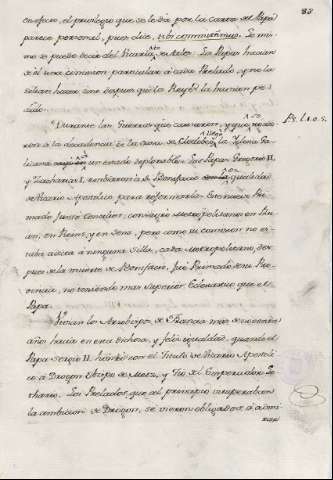 83
en efecto, el privilegio que se le dio por la Carta del Papa
parece personal, pues dice, tibi committimus. Lo mi-
mo se puede decir del Vicariato de Arles. Los Papas hacian
de él una comision particular à cada Prelado, y no la
solian hacer sino despues que los Reyes la huviesen pe-
dido.
Pt. l. 10. §.
Durante las Guerras que
à la decadencia de la casa de Clodoveo, la Iglesia Ga-
licana un estado deplorable. Los Papas Gregorio II,
y Zacharias I, rendieron à Sn Bonifacio la qualidad
de Vicario Apostolico para reformarla. Este nuevo Pri-
mado Juntó Concilios, consagró Metropolitanos en Ru-
an, en Reims, y en Sens; pero como su comision no es-
taba adicta à ninguna Silla, cada Metropolitano, des-
pues de la muerte de Sn Bonifacio, fué Primado de su Pro-
vincia, no teniendo mas Superior Eclesiastico que el
Papa.
Vivian los Arzobispos de Francia mas de ochenta
años hacia en esta dichosa, y feliz igualdad, quando el
Papa Sergio II. honró con el titulo de Vicario Apostoli-
co à Drogon Obispo de Metz, y Tio del Emperador Lo-
thario. Los Prelados, que al principio
la ambicion de Drogon, se vieron obligados à admi-